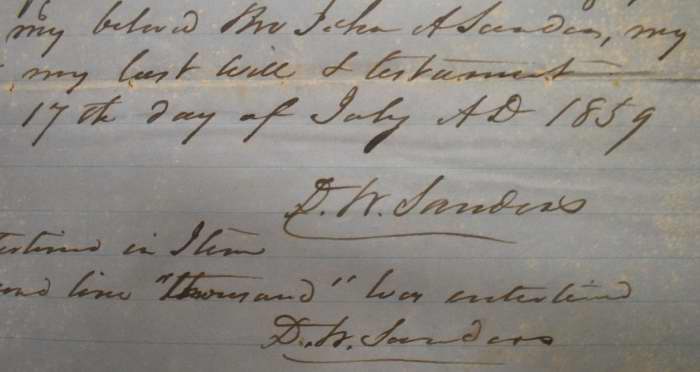 my beloved Bro John A Sanders, my
my last will & testament
17th day of July AD 1859
D. W. Sanders
in Item
line "thousand" was enterlined
D. W. Sanders